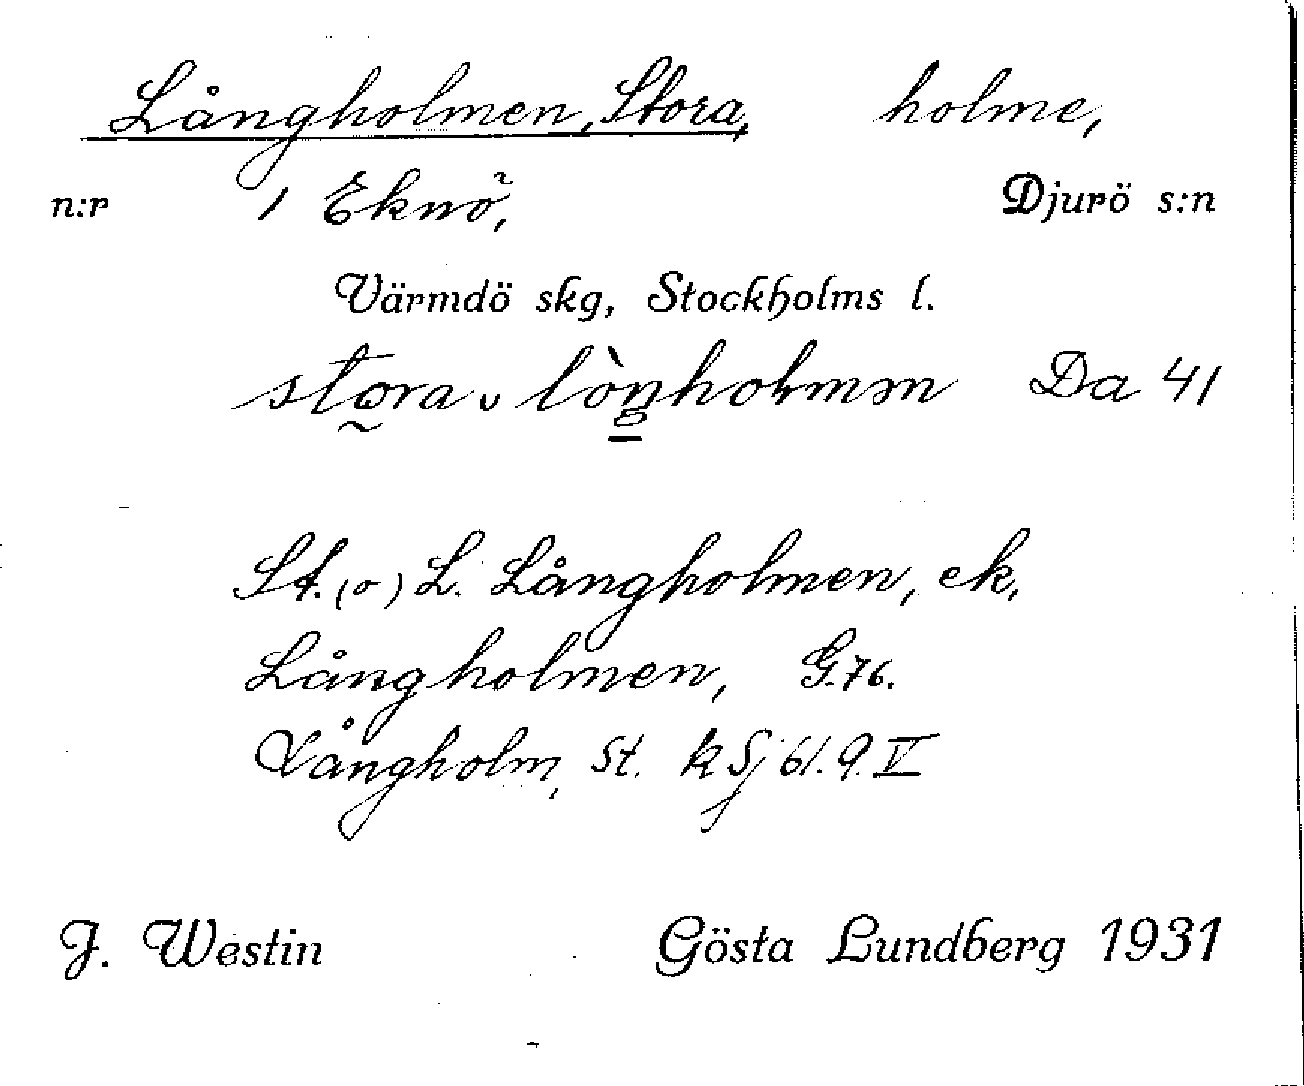 Långholmen, Stora, holme,
n:r 1 Eknö, Djurö s:n
Värmdö skg, Stockholms l.
stora lòŋholmm Da 41
St. (o) L. Långholmen, ek.
Långholmen, G.76.
Långholm, St. k Sj 61.9.V
J. Westin Gösta Lundberg 1931